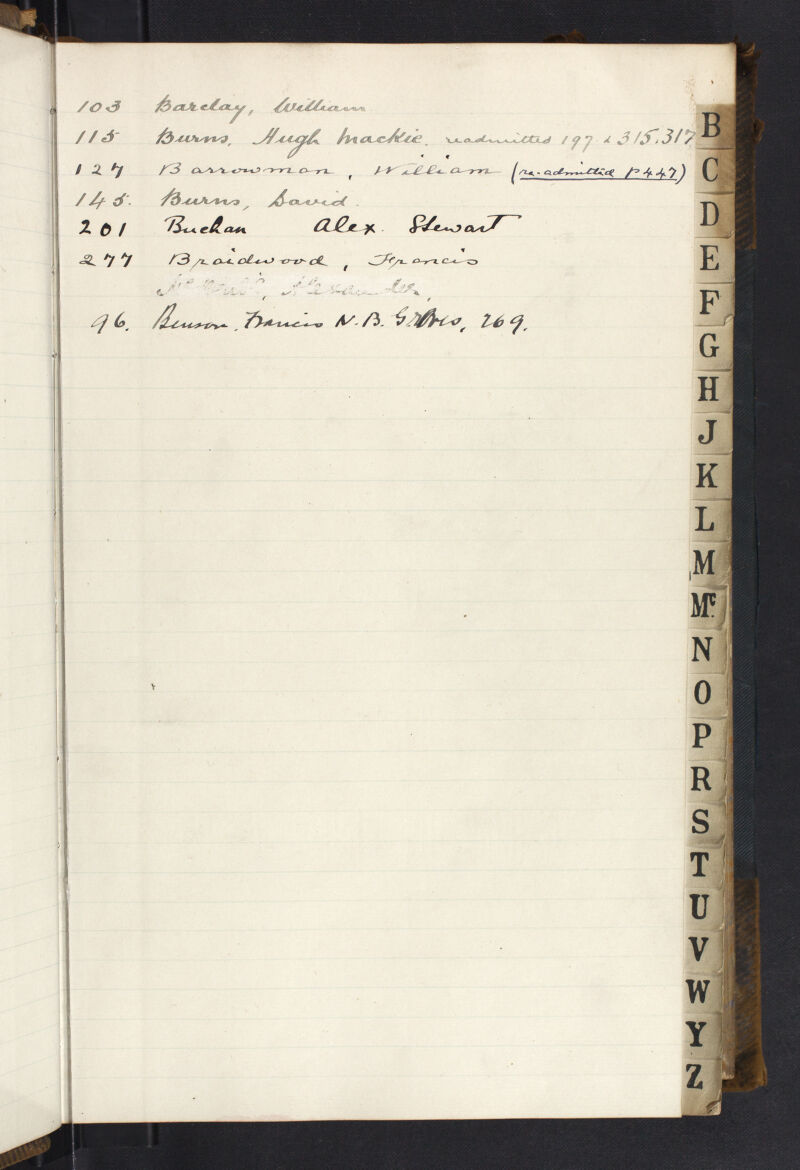 103 Barclay, William
115 Burns, Hugh Mackie. readmitted 197 & 315.317
127 Barrowman, William (re-admitted P447)
145. Burns, David.
201 Buchan Alex. Stewart
277 Braidwood, Francis
Alexander,
96. Benson, Francis N. B. 269.
B
C
D
E
F
G
H
J
K
L
M
Mc.
N
O
P
R
S
T
U
V
W
Y
Z